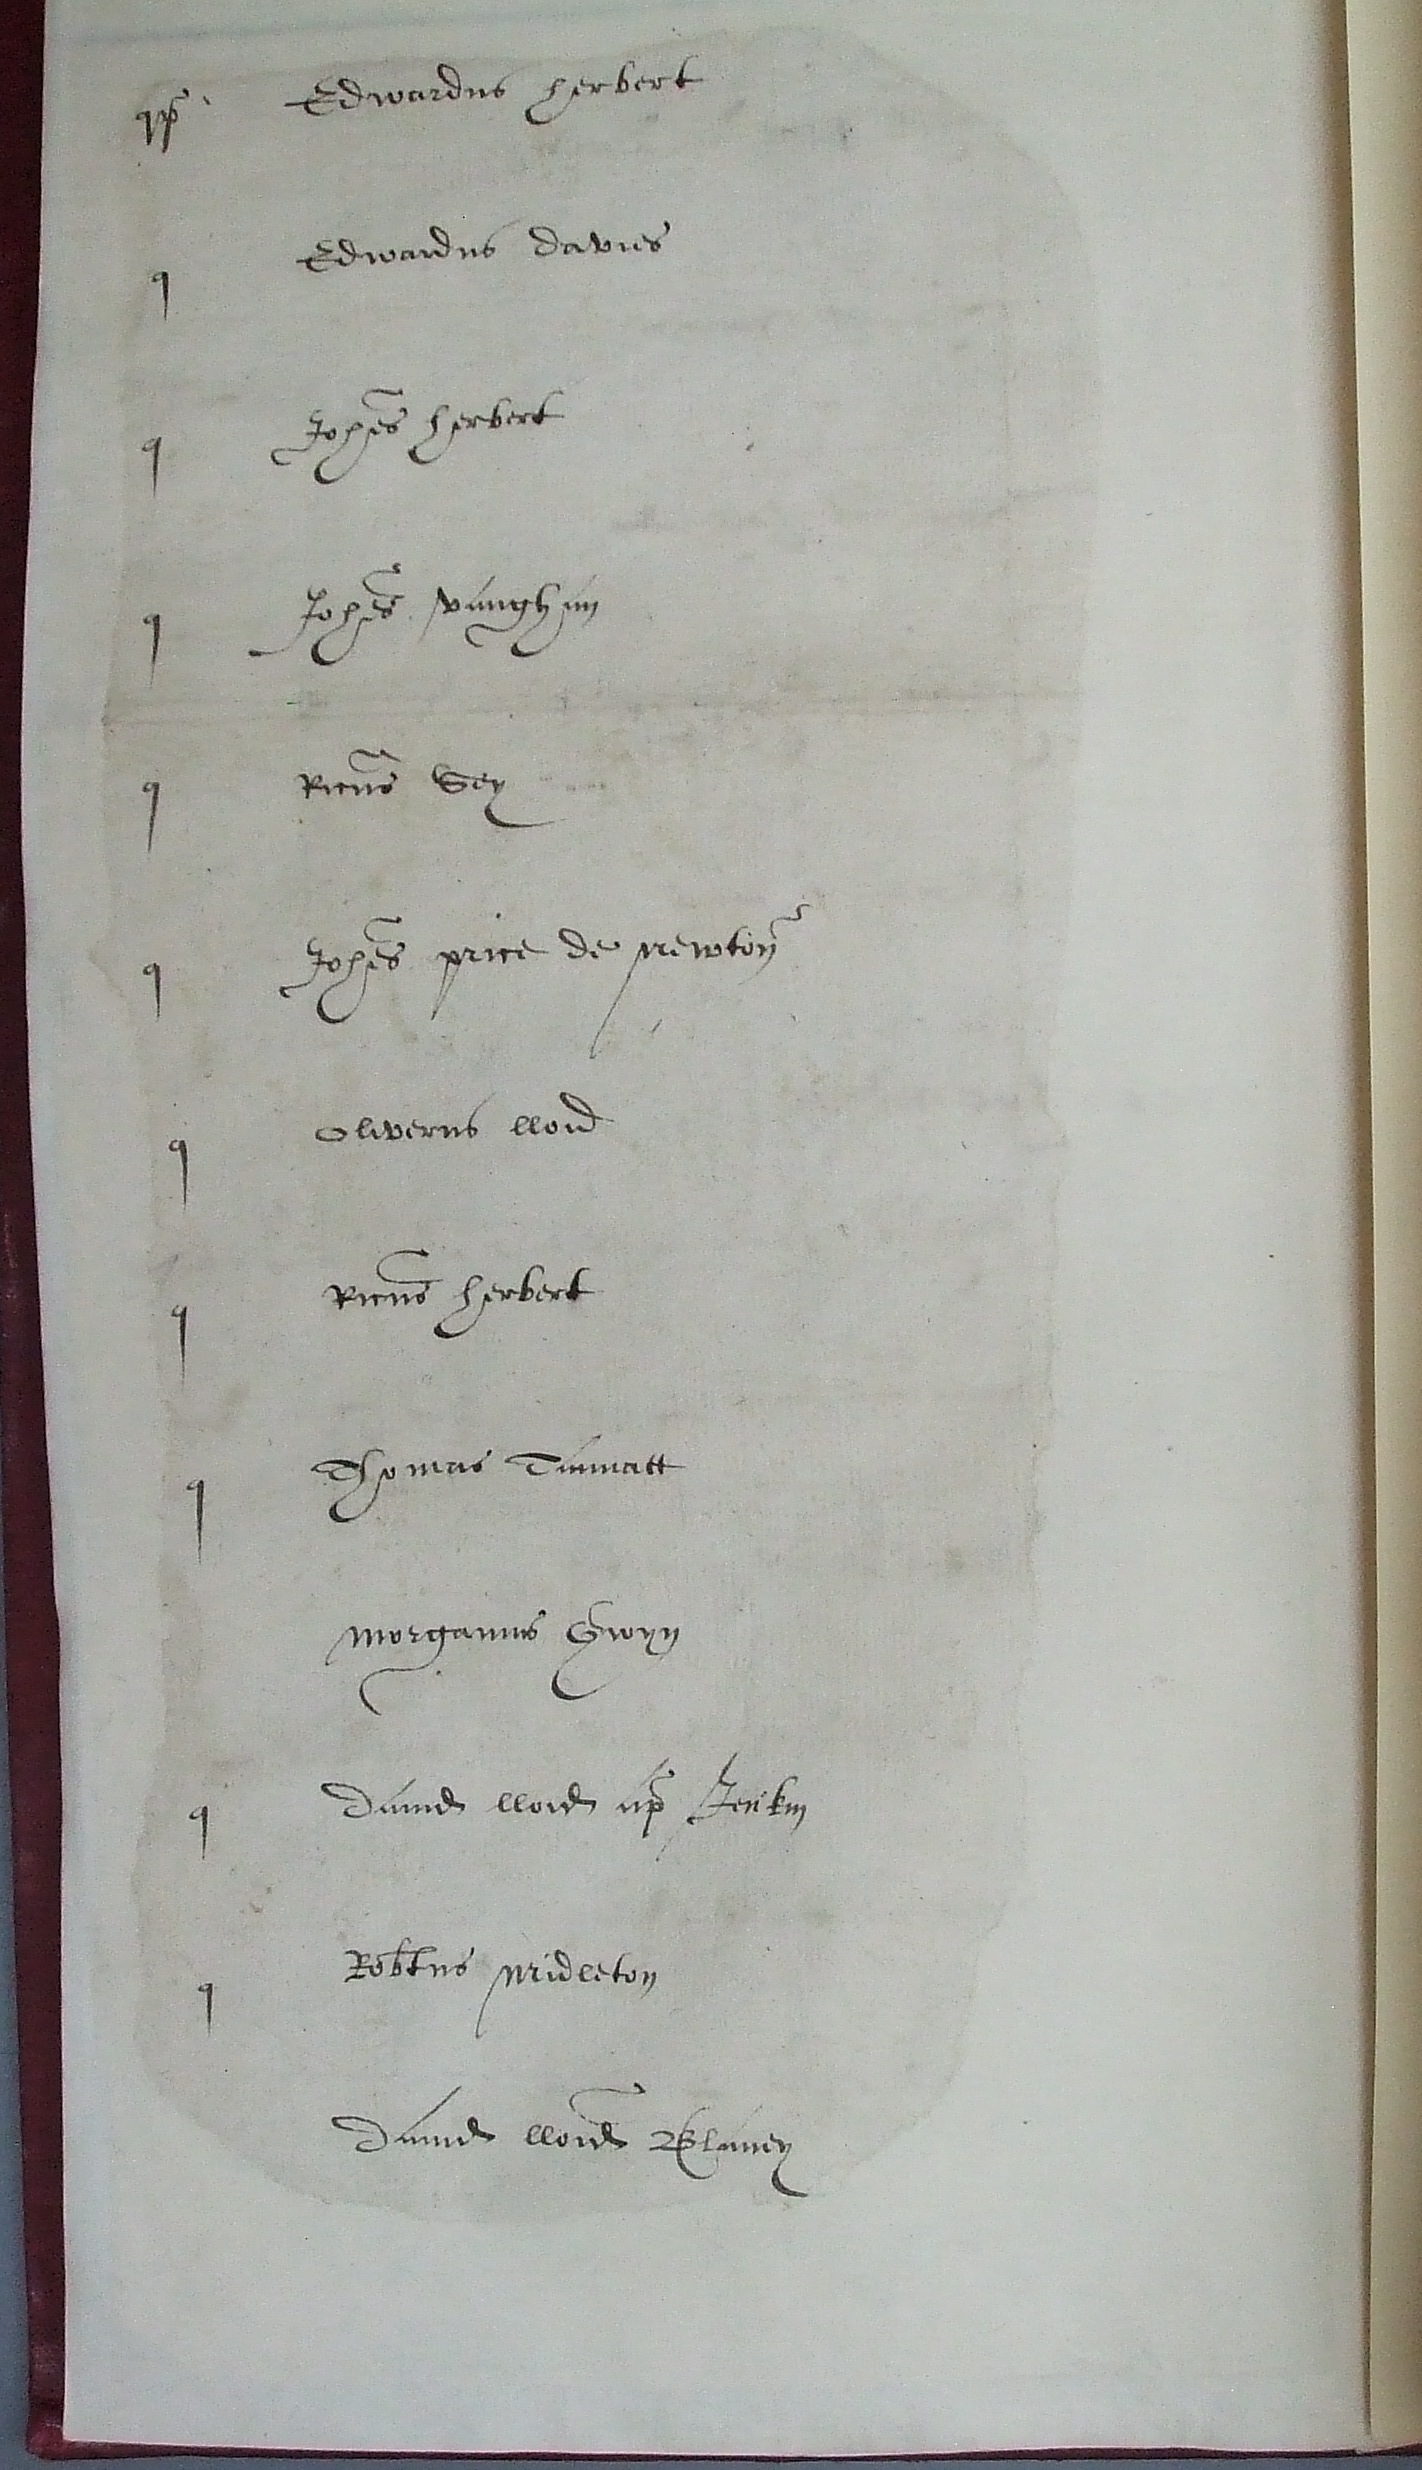 qp Edwardus herbert
q Edwardus davies
q Johes herbert
q Johes vaughan
q Ricus
q Johes price de Newton
q Oliverus lloid
q Ricus herbert
q Thomas Tannatt
Morganus Gwyn
q david lloid ap Jenkin
q Robtus Midleton
david lloid Blaney